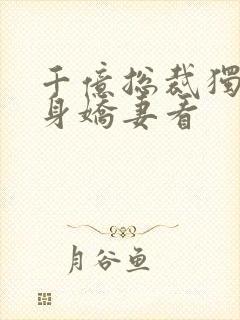 千億总裁獨
身嬌妻看
月谷鱼